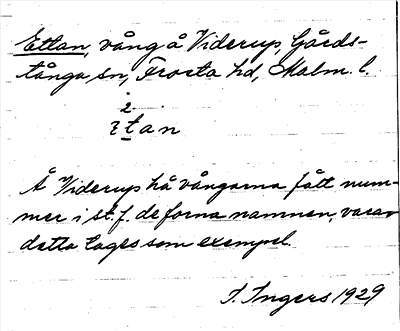 Ettan, vång å Viderup, Gårds-
tånga sn, Frosta hd, Malm. l.
Å Viderup hå vångarna fått num-
mer i st. f. de forna namnen, varav
detta tages som exempel.
I. Ingers 1929